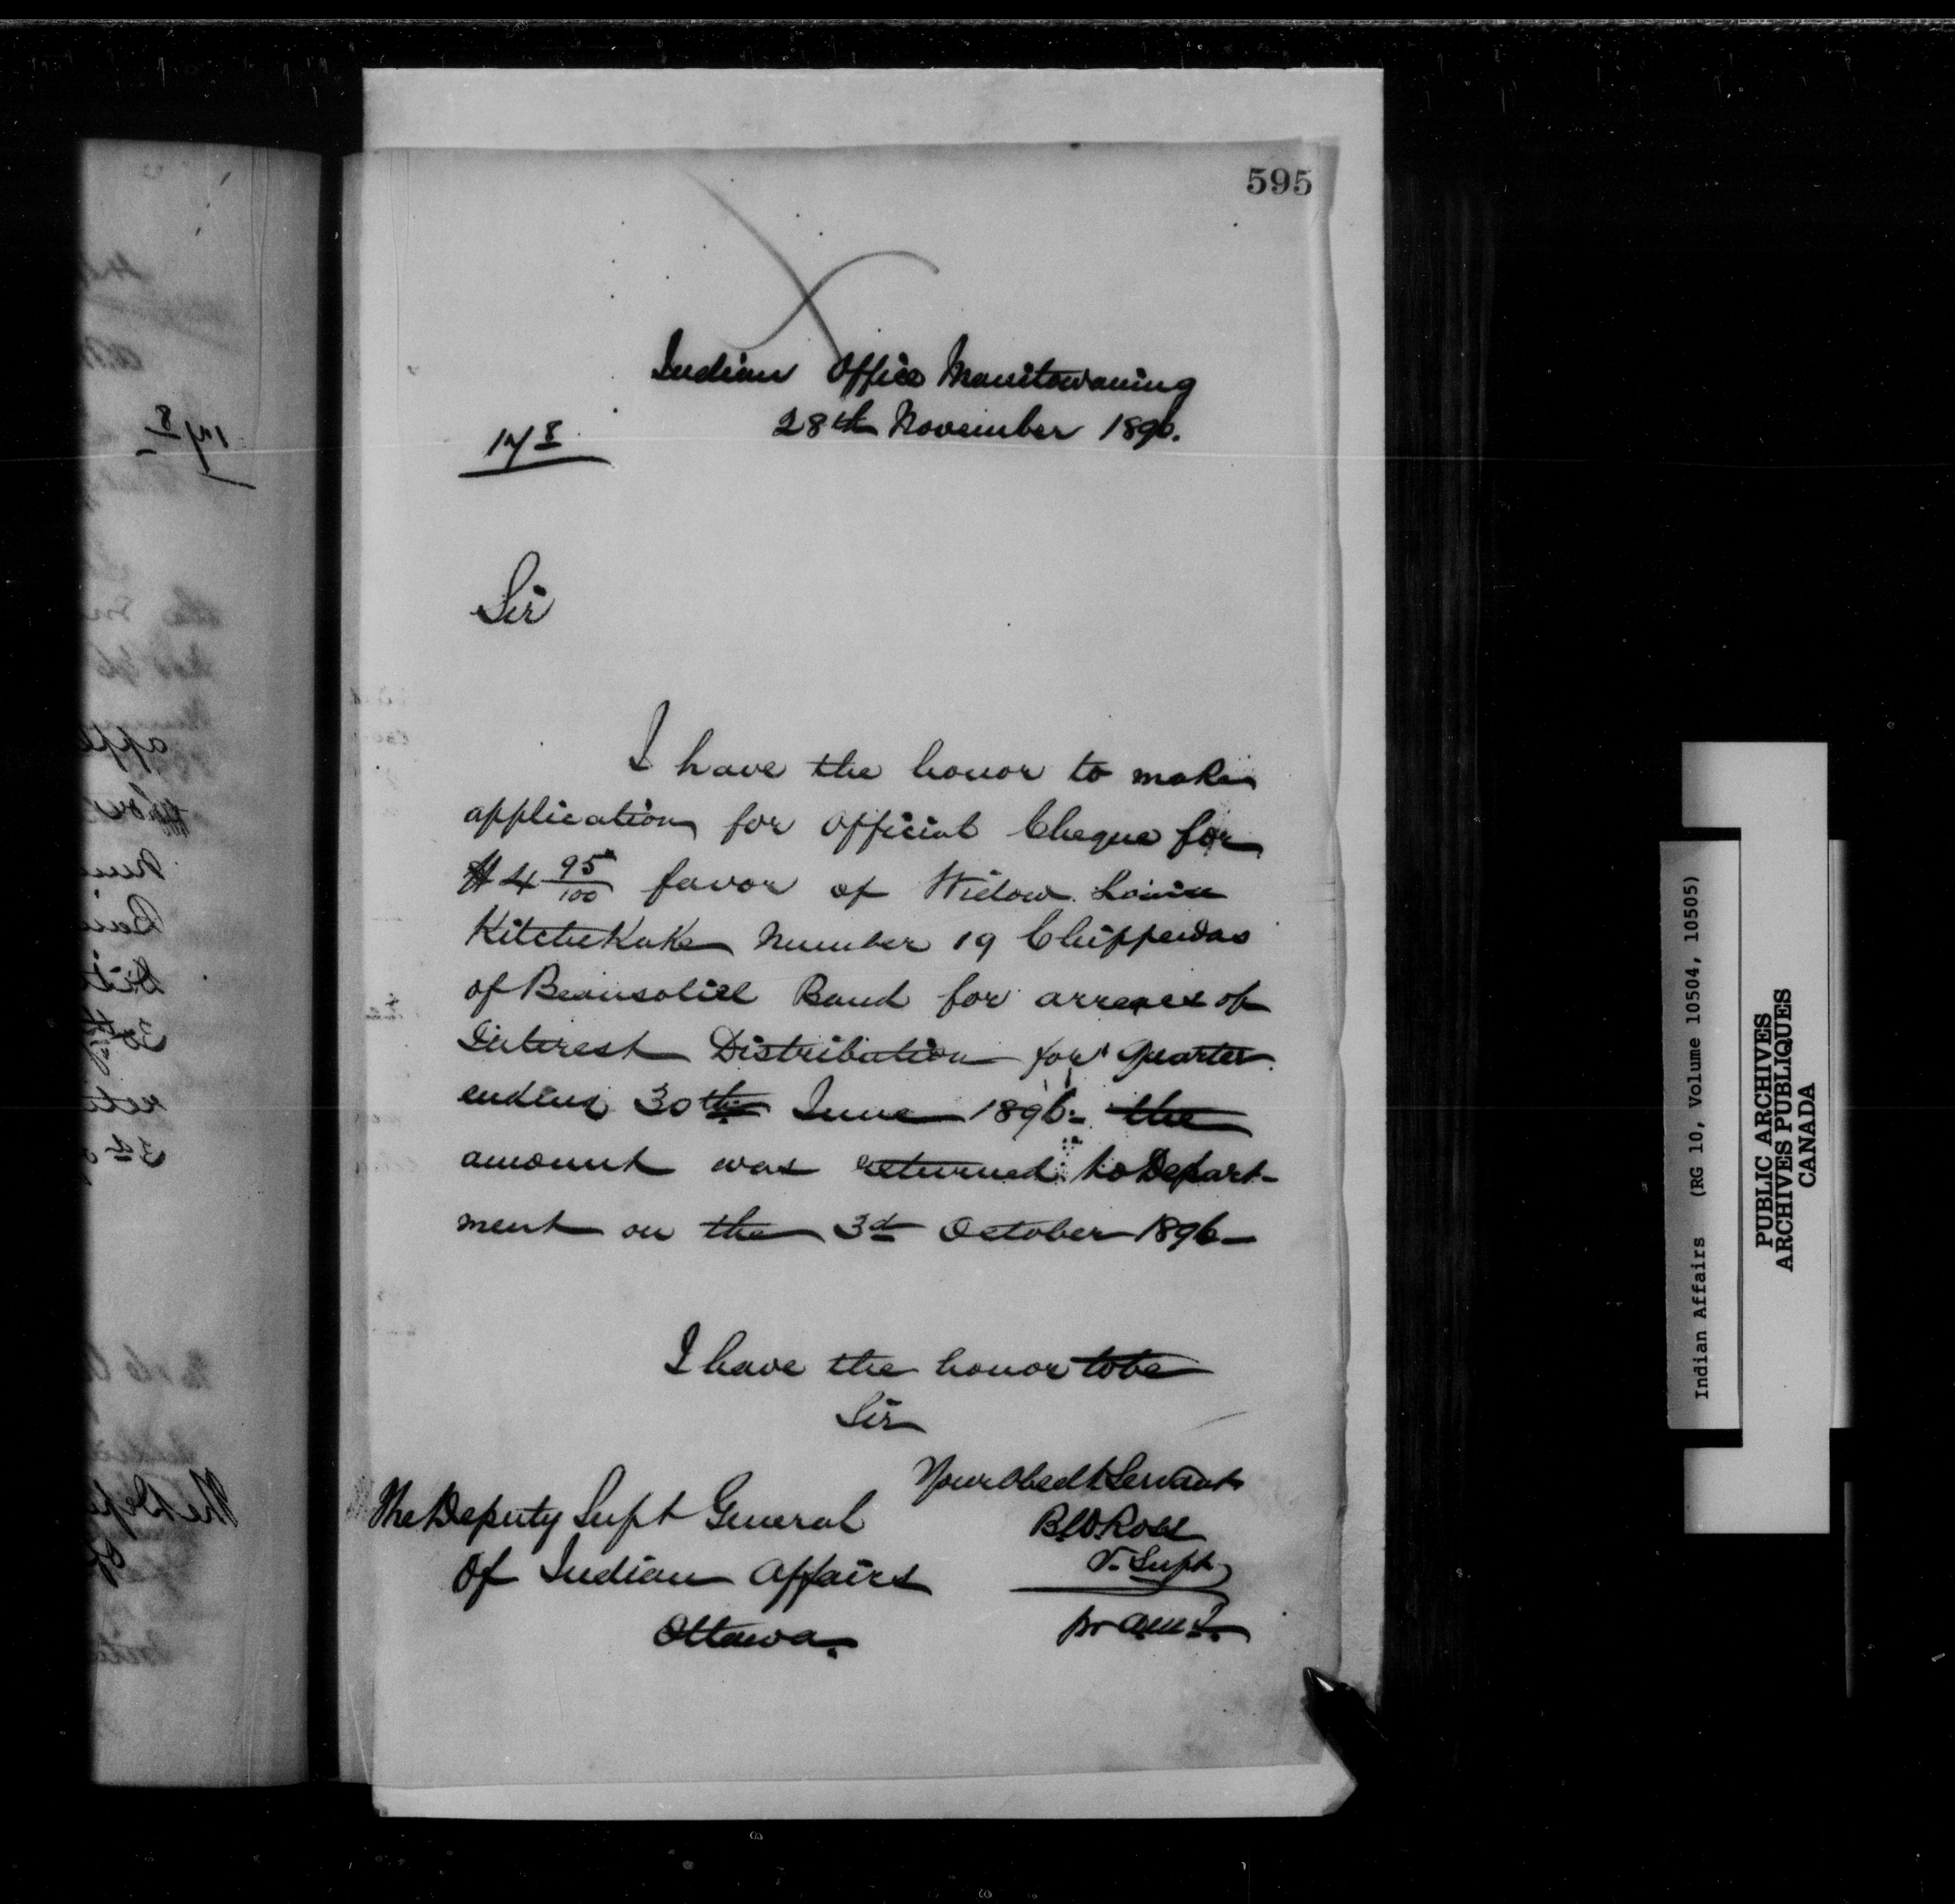 595
Indian Office Manitowaning
28th November 1896.
Sir
I have the honor to make
application for official Cheque for
$4 95/100 favor of Widow Louise
KitcheKake Number 19 Chippewas
of Beausoliel Band for arrears of
Interest Distribution for Quarter
ending 30th June 1896- the
amount was returned to Depart-
ment on the 3d October 1896-
I have the honor to be
Sir
Your Obedt Servant
The Deputy Supt General
Of Indian Affairs
Ottawa.
B.W. Ross
V. Supt
Indian Affairs (RG 10, Volume 10504, 10505)
PUBLIC ARCHIVES
ARCHIVES PUBLIQUES
CANADA